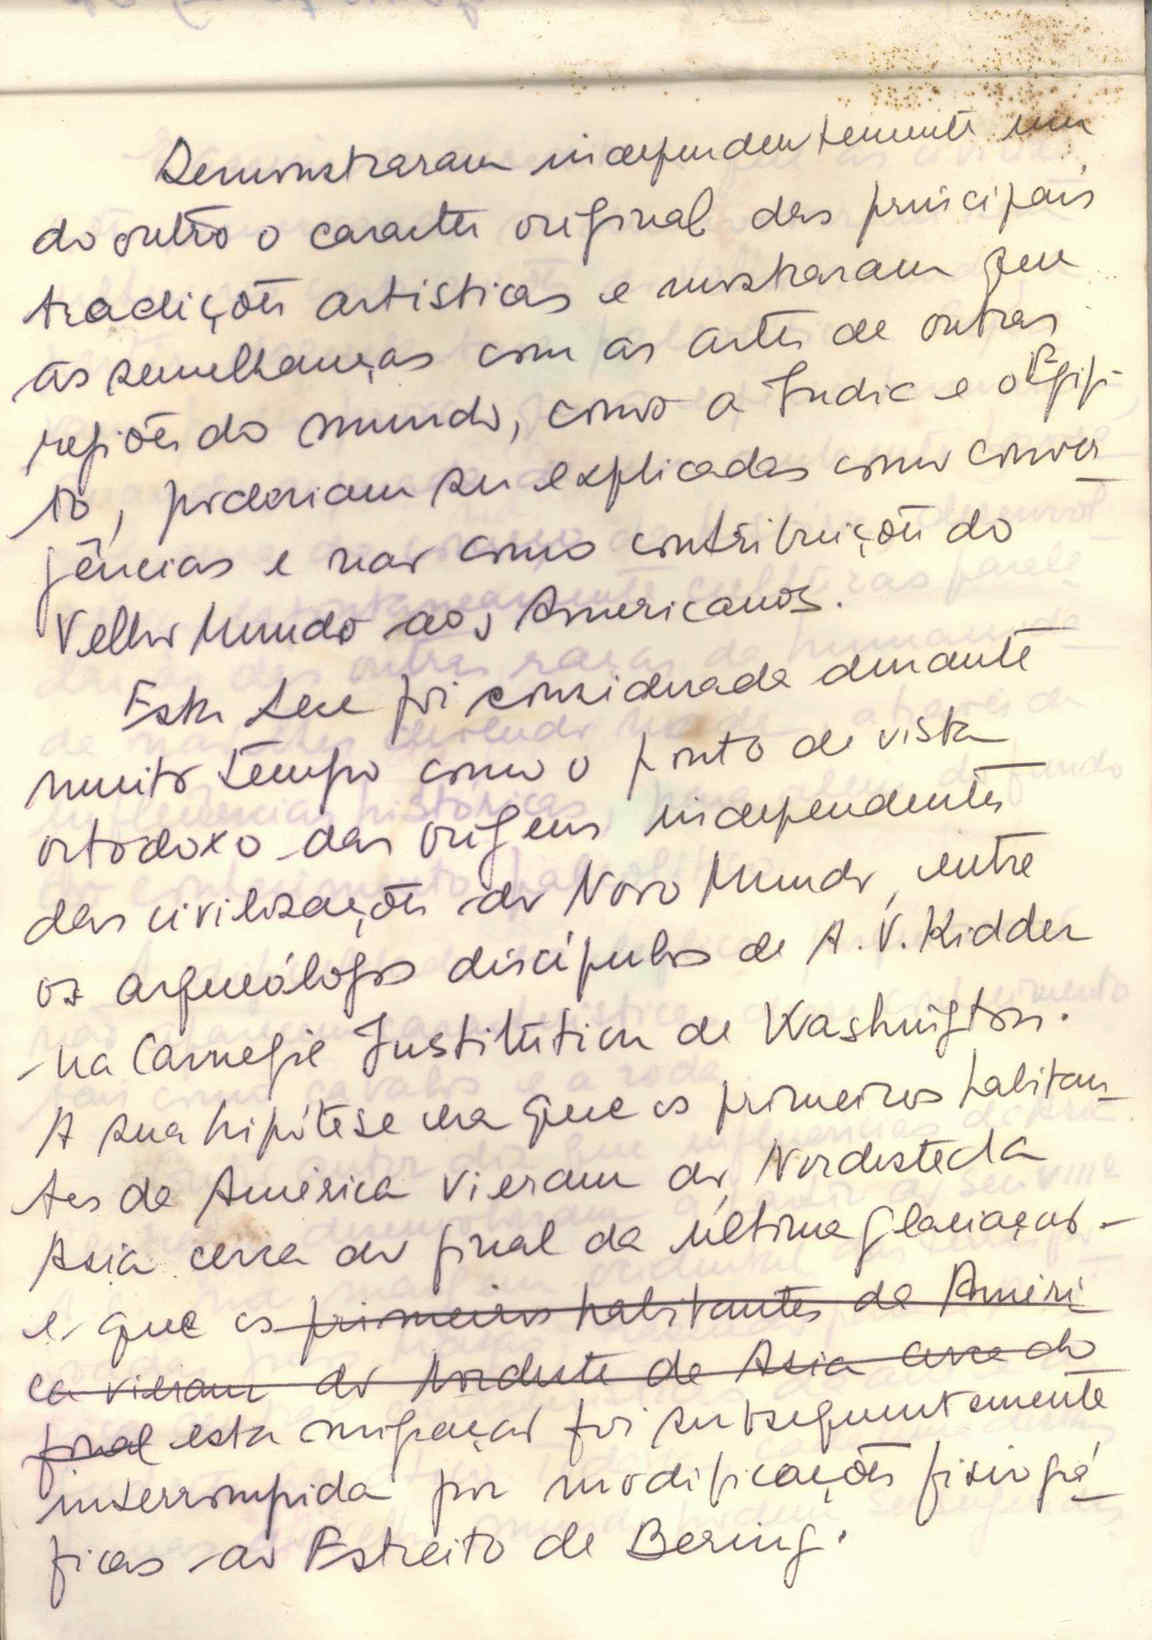 Demonstraram independentemente um
do outro o caracter original das principais
tradições artisticas e mostraram que
as semelhanças com as artes de outras
regiões do mundo, como a India e o Egip-
to, poderiam ser explicadas como conver
gências e não como contribuições do
Velho Mundo aos Americanos.
Esta tese foi considerada durante
muito tempo como o ponto de vista
ortodoxo das origens independentes
das civilizações do Novo Mundo, entre
os arqueólogos discípulos de A. V. Kidder
na Carnegie Institution de Washington.
A sua hipótese era que os primeiros habitan_
tes da América vieram do Nordeste da
Asia cerca do final da última glaciação -
e que os primeiros habitantes da Améri
ca vieram do Nordeste da Asia cerca do
final esta migração foi subsequentemente
interrompida por modificações fisiográ
ficas do Estreito de Bering.